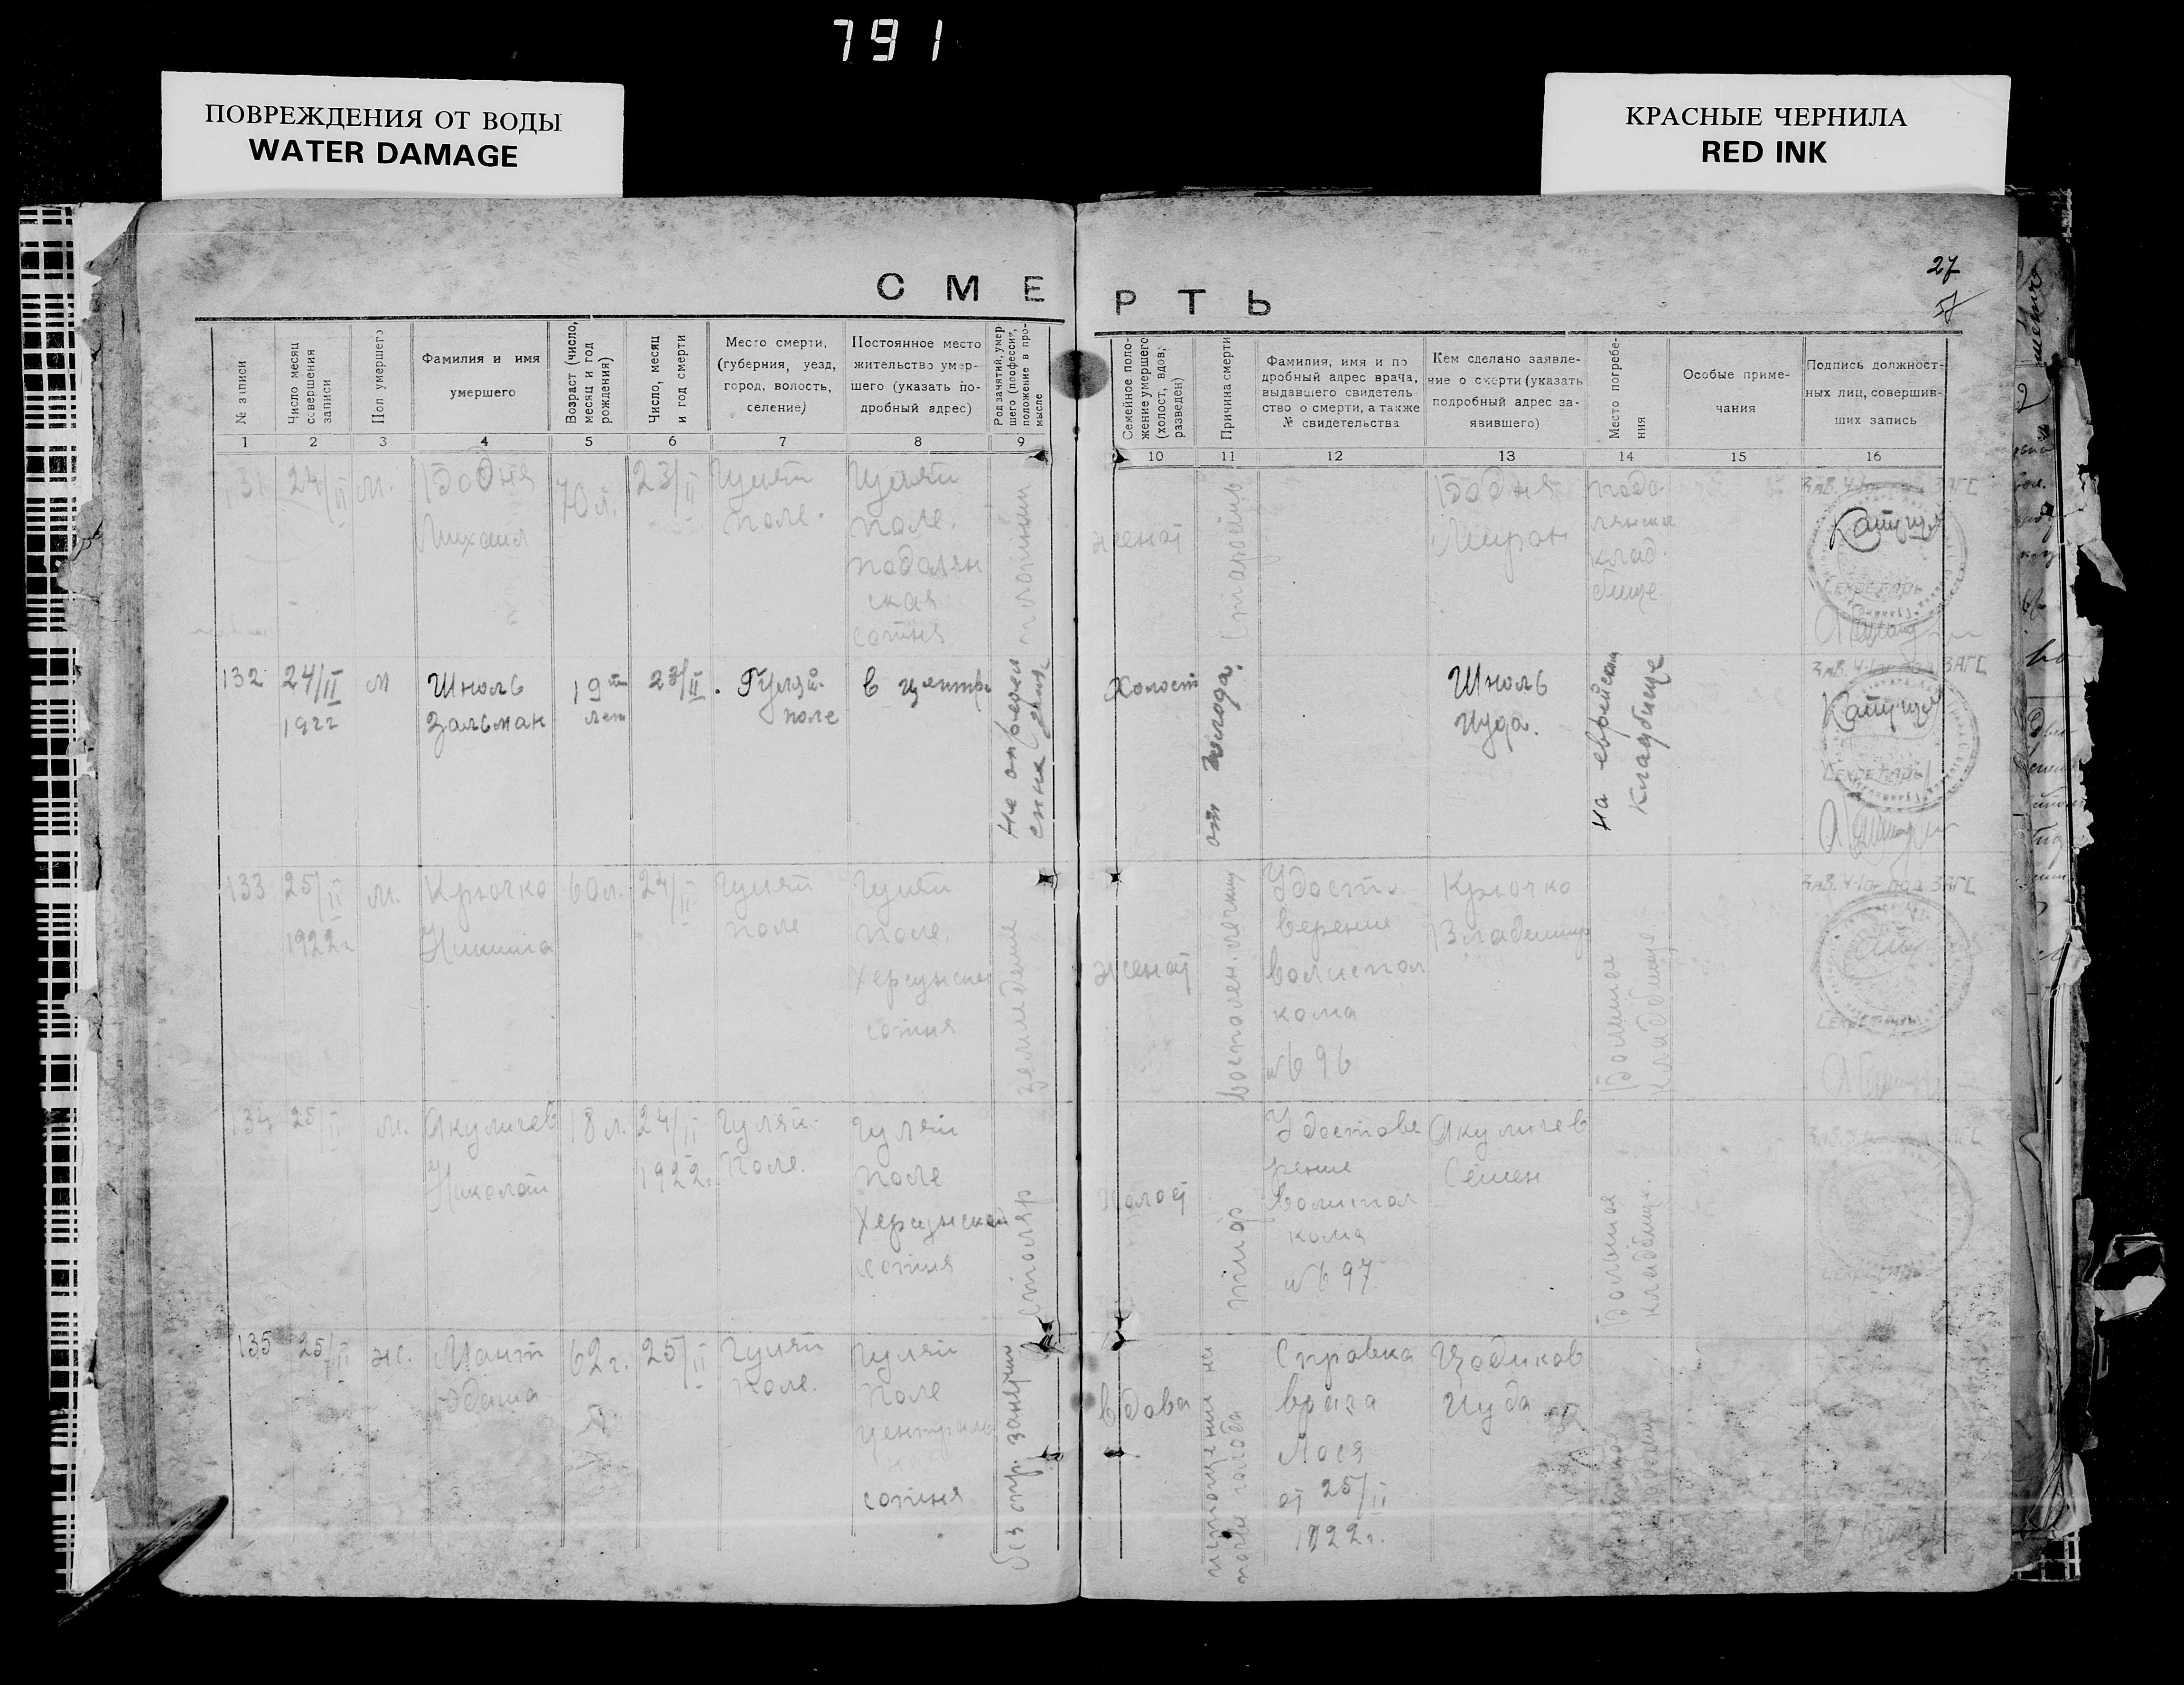 791
ПОВРЕЖДЕНИЯ ОТ ВОДЫ
WATER DAMAGE
КРАСНЫЕ ЧЕРНИЛА
RED INK
27
СМЕРТЬ
№ записи
Число месяц совершения записи
Пол умершего
Фамилия и имя
умершего
Возраст (число, месяц и год рождения)
Число, месяц и год смерти
Место смерти,
(губерния, уезд,
город, волость,
селение)
Постоянное место
жительство умер-
шего (указать по-
дробный адрес)
Род занятий, умер
шего (профессия,
положение в про-
мысле
Семейное поло-
жение умершего
(холост, вдов,
разведен)
Причина смерти
Фамилия, имя и по
дробный адрес врача,
выдавшего свидетель-
ство о смерти, а также
№ свидетельства
Кем сделано заявле-
ние о смерти (указать
подробный адрес за-
явившего)
Место погребе-
ния
Особые приме-
чания
Подпись должност-
ных лиц, совершив-
ших запись
1 2 3 4 5 6 7 8 9 10 11 12 13 14 15 16
131
24/II
м.
Бодня
Михаил
70 л.
23/II
Гуляй
поле.
Гуляй
поле,
подолян
ская
сотня
плотник
женат
Старость
Бодня
Мирон
подо
лянское
клад
бище
СЕКРЕТАРЬ
132
24/II
1922
м
Шноль
Зальман
19
лет
23/II.
Гуляй-
поле
в центре
Не определ
енн
Холост
от голода.
Шноль
Иуда.
на еврейском
Кладбище
СЕКРЕТАРЬ
133
25/II
1922г
м.
Крючко
Никита
60 л.
24/II
Гуляй
поле
Гуляй
поле,
Херсунская
сотня
земледелие
женат
воспален.
Удосто
верение
волиспол
кома
№ 96
Крючко
Владимир
Большое
кладбище.
СЕКРЕТАРЬ
134
25/II
м.
Якуличев
Николай
18 л.
24/II
1922г.
Гуляй-
поле.
Гуляй
поле
Херсунская
сотня
столяр
Холост
тиф
Удостове
рение
Волиспол
кома
№ 97.
Якуличев
Семен
Большое
кладбище.
СЕКРЕТАРЬ
135
25/II
ж.
Мант
62 г.
25/II
Гуляй
поле.
Гуляй
поле
централь
сотня
без опр. занятий
вдова
истощение на
почве голода
Справка
врача
Лося
от 25/II
1922г.
Цодиков
Иуда